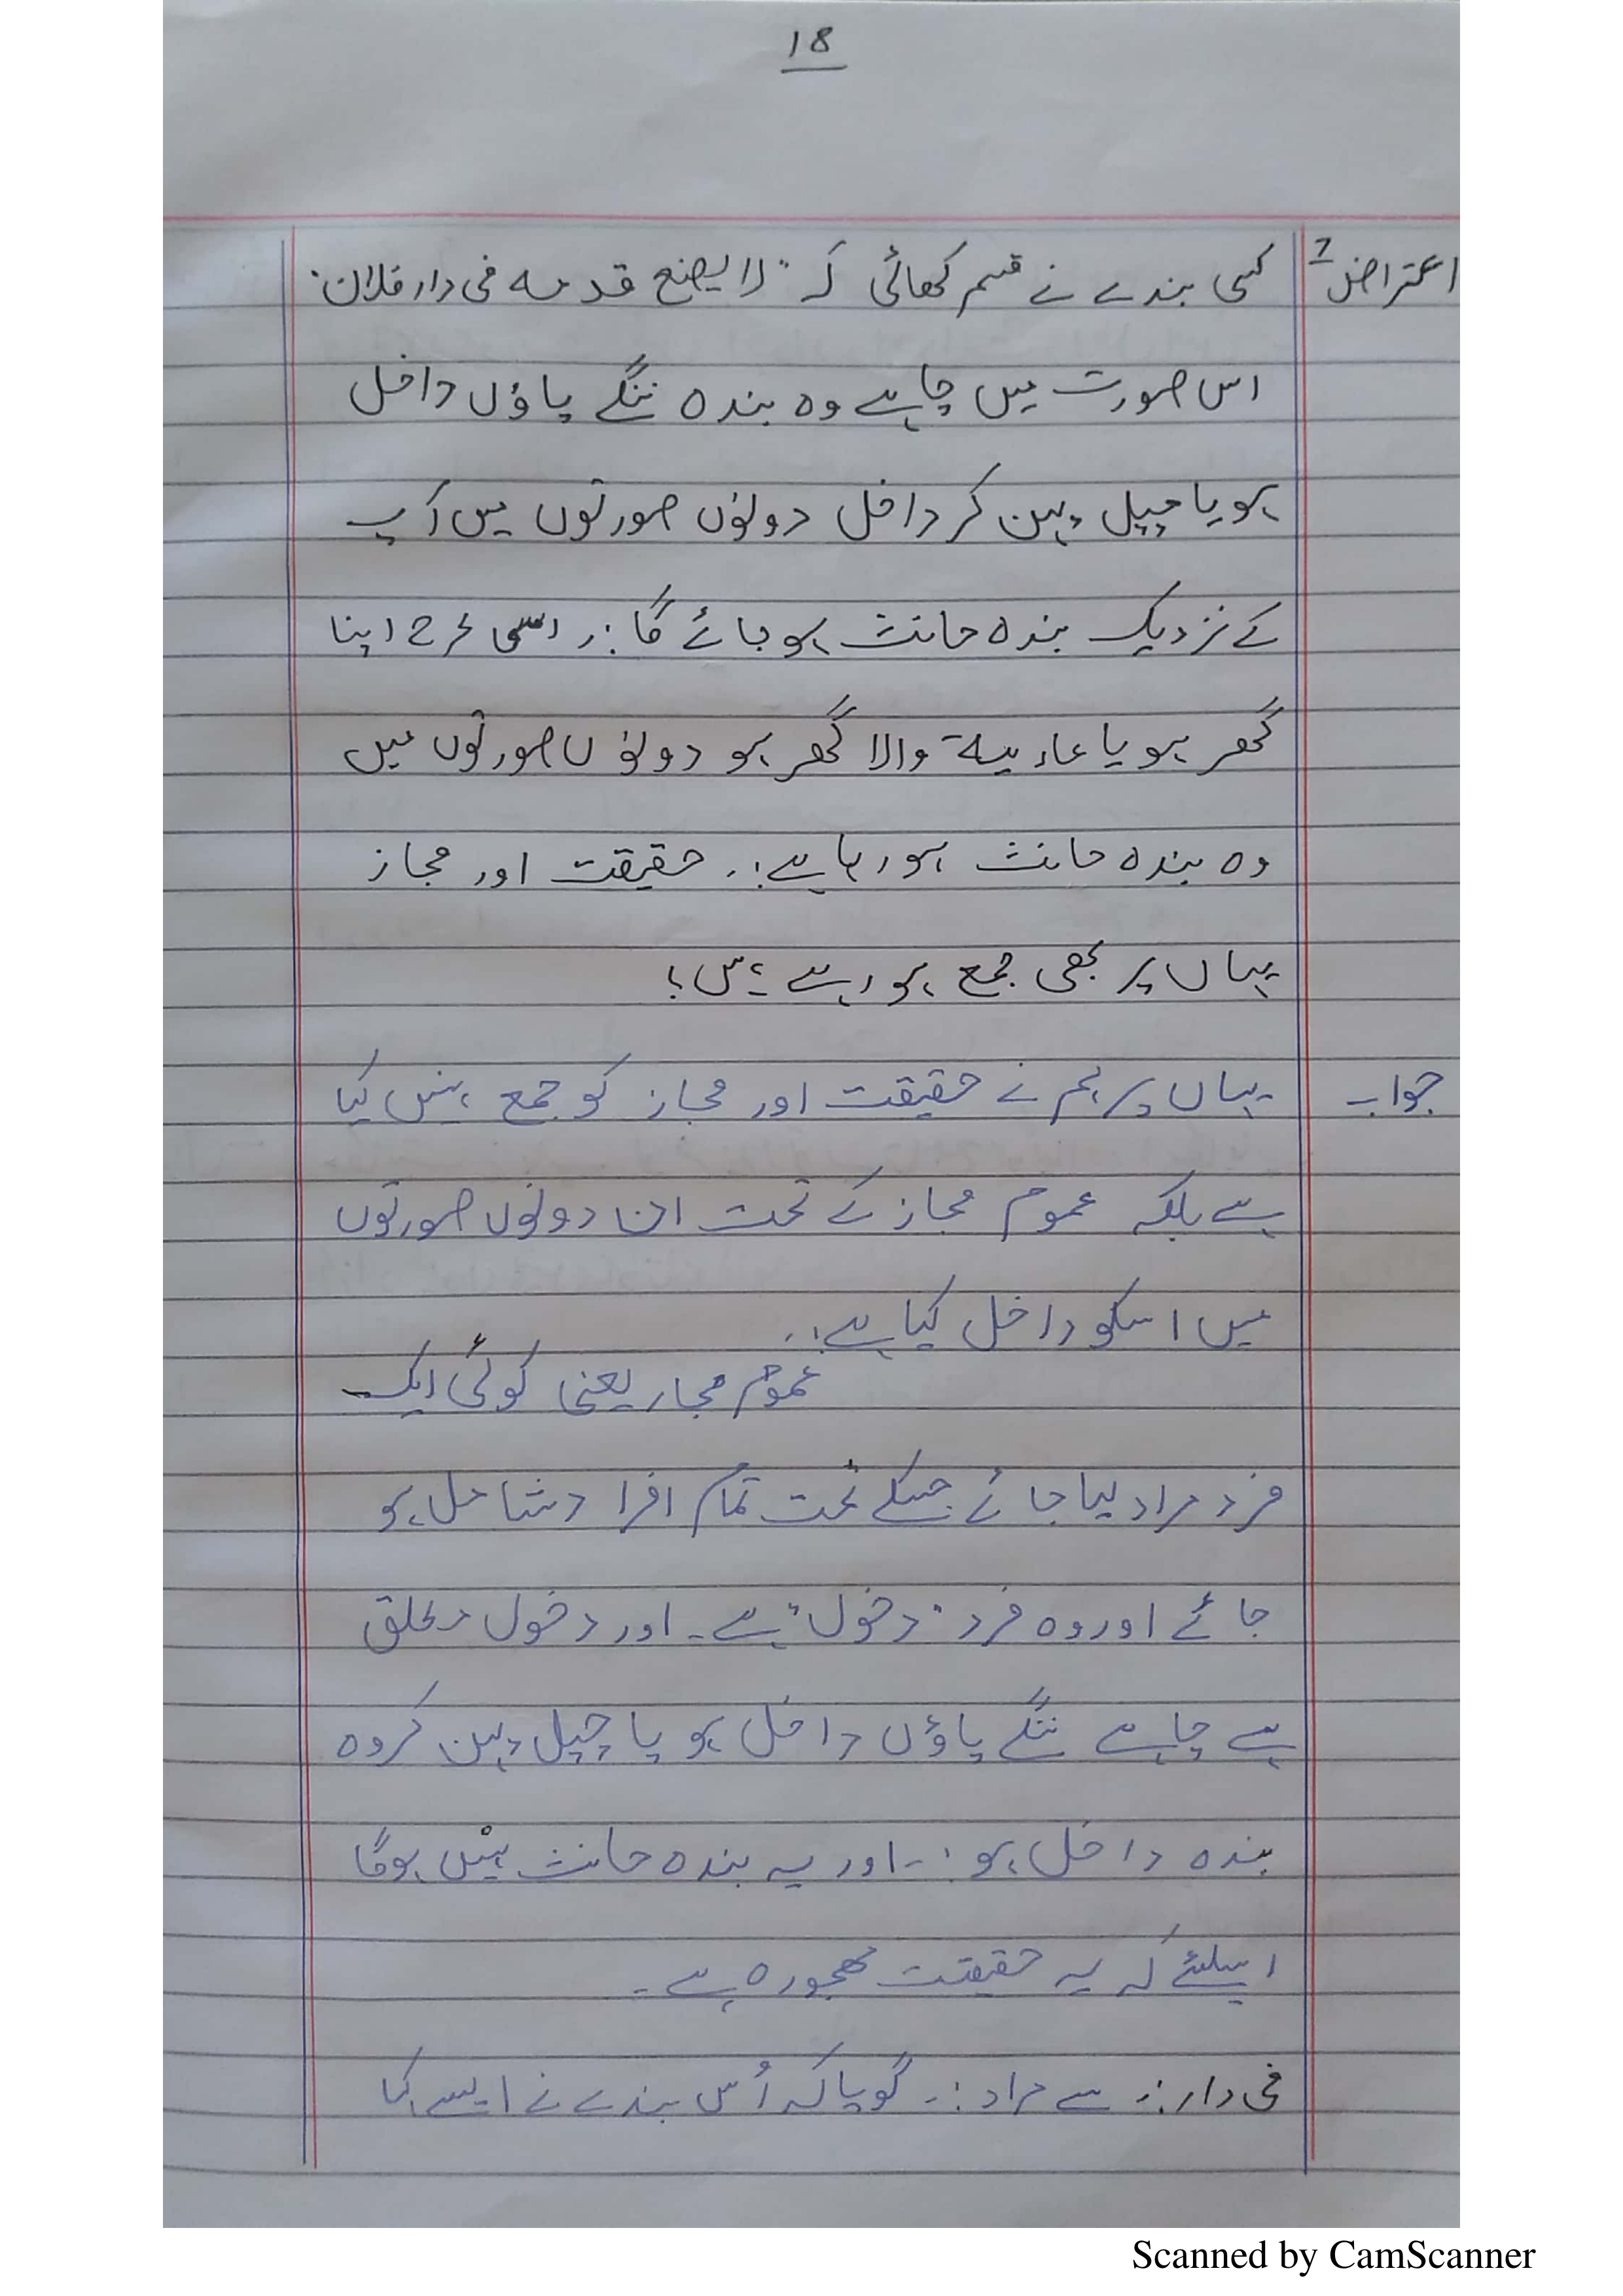 18
اعتراض 2 کسی بندے نے قسم کھائی کہ "لا یضع قدمہ فی دار فلان"
اس صورت میں چاہے وہ بندہ ننگے پاؤں داخل
ہو یا چپل پہن کر داخل دونوں صورتوں میں آپ
کے نزدیک بندہ حانث ہو جائے گا:. اسی طرح اپنا
گھر ہو یا عاریۃ والا گھر ہو دونوں صورتوں میں
وہ بندہ حانث ہو رہا ہے:. حقیقت اور مجاز
یہاں پر بھی جمع ہو رہے ہیں؟
جواب یہاں پر ہم نے حقیقت اور مجاز کو جمع نہیں کیا
ہے بلکہ عموم مجاز کے تحت ان دونوں صورتوں
میں اسکو داخل کیا ہے:.
عموم مجاز یعنی کوئی ایک
فرد مراد لیا جائے جسکے تحت تمام افراد شامل ہو
جائے اور وہ فرد "دخول" ہے۔ اور دخول مطلق
ہے چاہے ننگے پاؤں داخل ہو یا چپل پہن کر وہ
بندہ داخل ہو :۔ اور یہ بندہ حانث نہیں ہوگا
اسلئے کہ یہ حقیقت مھجورہ ہے۔
فی دار:. سے مراد :. گویا کہ اُس بندے نے ایسے کہا
Scanned by CamScanner